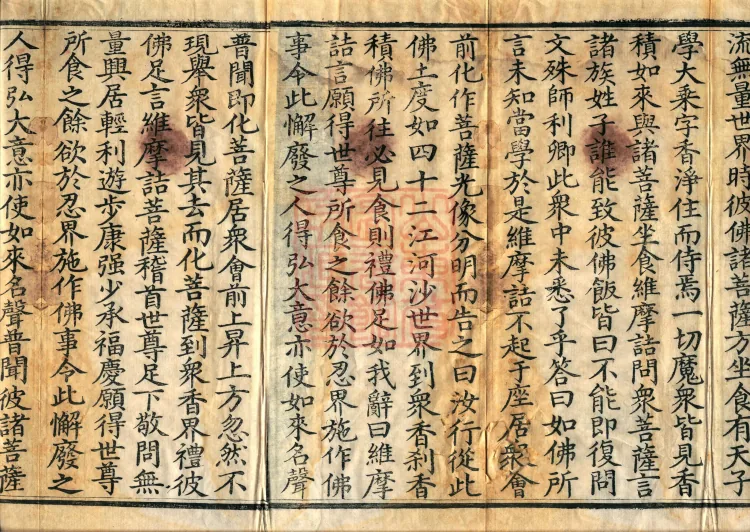 流無量世界時彼佛諸菩薩方坐食有天子
學大乘字香淨住而侍焉一切魔衆皆見香
積如來與諸菩薩坐食維摩詰問衆菩薩言
諸族姓子誰能致彼佛飯皆曰不能即復問
文殊師利卿此衆中未悉了乎答曰如佛所
言未知當學於是維摩詰不起于座居衆會
前化作菩薩光像分明而告之曰汝行從此
佛土度如四十二江河沙世界到衆香刹香
積佛所往必見食則禮佛足如我辭曰維摩
詰言願得世尊所食之餘欲於忍界施作佛
事令此懈廢之人得弘大意亦使如來名聲
普聞即化菩薩居衆會前上昇上方忽然不
現舉衆皆見其去而化菩薩到衆香界禮彼
佛足言維摩詰菩薩稽首世尊足下敬問無
量興居輕利遊步康强少承福慶願得世尊
所食之餘欲於忍界施作佛事令此懈廢之
人得弘大意亦使如來名聲普聞彼諸菩薩